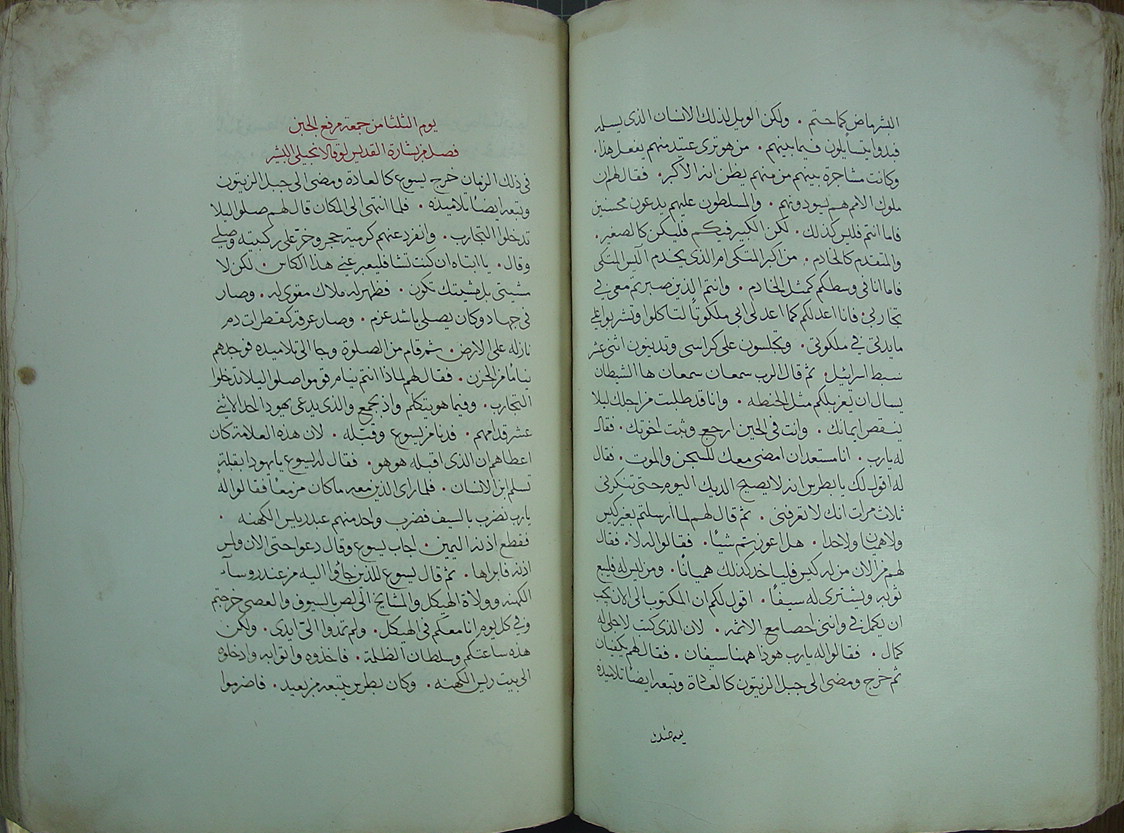 البشر ماض كما حتم . ولكن الويل لذلك الانسان الذي يسلمه
فبدوا يتسايلون فيما بينهم . من هو ترى عتيد منهم يفعل هذا .
وكانت مشاجرة بينهم من منهم يظن انه الاكبر . فقال لهم ان
ملوك الامم هم ليسودونهم . والمسلطون عليهم يدعون محسنين
فاما انتم فليس كذلك . لكن الكبير فيكم فليكن كالصغير .
والمتقدم كالخادم . من اكبر المتكى ام الذي يخدم اليس المتكى
فاما انا في وسطكم كمثل الخادم . وانتم الذين صبرتم معي في
تجاربي . فانا اعد لكم كما اعد لي ابي ملكوتا لتاكلوا وتشربوا على
مايدتي في ملكوتي . وتجلسون على كراسى وتدينون اثني عشر
سبط اسرائيل . ثم قال الرب سمعان سمعان ها الشيطان
يسال ان يغربلكم مثل الحنطه . وانا قد طلبت من اجلك ليلا
ينقص ايمانك . وانت في الحين ارجع وثبت اخوتك . فقال
له يارب . انا مستعد ان امضى معك للسجن والموت . فقال
له اقول لك يا بطرس انه لا يصيح الديك اليوم حتى تنكرني
ثلاث مرات انك لا تعرفني . ثم قال لهم لما ارسلتم بغير كيس
ولا هميان ولا حذا . هل اعوزتم شيا . فقالوا له لا . فقال
لهم من الان من له كيس فلياخذ كذلك هميانا . ومن ليس له فليبع
ثوبه ويشترى له سيفا . اقول لكم ان المكتوب الى الان يجب
ان يكمل في وانني احصا مع الاثمه . لان الذي كتب لاجلي له
كمال . فقالوا له يارب هوذا ههنا سيفان . فقال لهم يكفيان
ثم خرج ومضى الى جبل الزيتون كالعادة وتبعه ايضا تلاميذه
يوم الثلثا من جمعة مرفع الجبن
فصل من بشارة القديس لوقا الانجيلي البشير
في ذلك الزمان خرج يسوع كالعادة ومضى الى جبل الزيتون
وتبعه ايضا تلاميذه . فلما انتهى الى المكان قال لهم صلوا ليلا
تدخلوا التجارب . وانفرد عنهم كرمية حجر وخر على ركبتيه وصلى
وقال . يا ابتاه ان كنت تشا فليعبر عني هذا الكاس . لكن لا
مشيتي بل مشيتك تكون . فظهر له ملاك مقوي له . وصار
في جهاد وكان يصلي باشد عزم . وصار عرقه كقطرات دم
نازله على الارض . ثم قام من الصلوة وجا الى تلاميذه فوجدهم
نياما من الحزن . فقال لهم لماذا انتم نيام قوموا صلوا ليلا تدخلوا
التجارب . وفيما هو يتكلم واذ بجمع والذي يدعى يهودا احد الاثني
عشر قدامهم . فدنا من يسوع وقبله . لان هذه العلامة كان
اعطاهم ان الذي اقبله هو هو . فقال له يسوع يا يهودا بقبلة
تسلم ابن الانسان . فلما راى الذين معه ما كان مزمعا فقالوا له
يارب نضرب بالسيف فضرب واحد منهم عبد ريس الكهنه .
فقطع اذنه اليمين . اجاب يسوع وقال دعوا حتى الان ولمس
اذنه فابراها . ثم قال يسوع للذين جاوا اليه من عند روسآ
الكهنه وولاة الهيكل والمشايخ الى لص بالسيوف والعصي خرجتم
وفي كل يوم انا معكم في الهيكل . ولم تمدوا الي ايدي . ولكن
هذه ساعتكم وسلطان الظلمة . فاخذوه واتوا به وادخلوه
الى بيت ريس الكهنه . وكان بطرس يتبعه من بعيد . فاضرموا